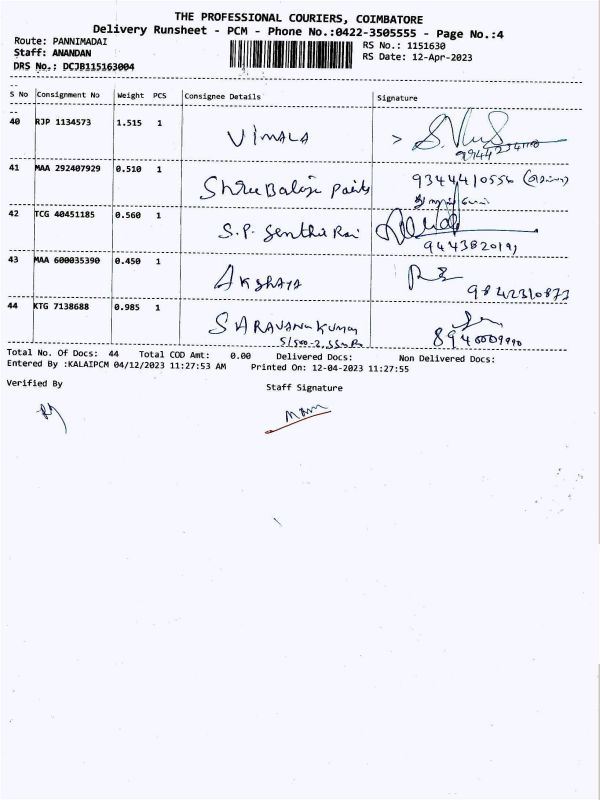 THE PROFESSIONAL COURIERS, COIMBATORE
Delivery Runsheet - PCM - Phone No.:0422-3505555 - Page No.:4
Route: PANNIMADAI
Staff: ANANDAN
DRS No.: DCJB115163004
RS No.: 1151630
RS Date: 12-Apr-2023
S No Consignment No Weight PCS Consignee Details Signature
40 RJP 1134573 1.515 1 VIMALA
41 MAA 292407929 0.510 1 Shree Balaji 9344410556
42 TCG 40451185 0.560 1 S.P. Senthil
43 MAA 600035390 0.450 1 AKSHAYA 9842310873
44 KTG 7138688 0.985 1 SARAVANA KUMAR
Total No. Of Docs: 44 Total COD Amt: 0.00 Delivered Docs: Non Delivered Docs:
Entered By :KALAIPCM 04/12/2023 11:27:53 AM Printed On: 12-04-2023 11:27:55
Verified By
Staff Signature